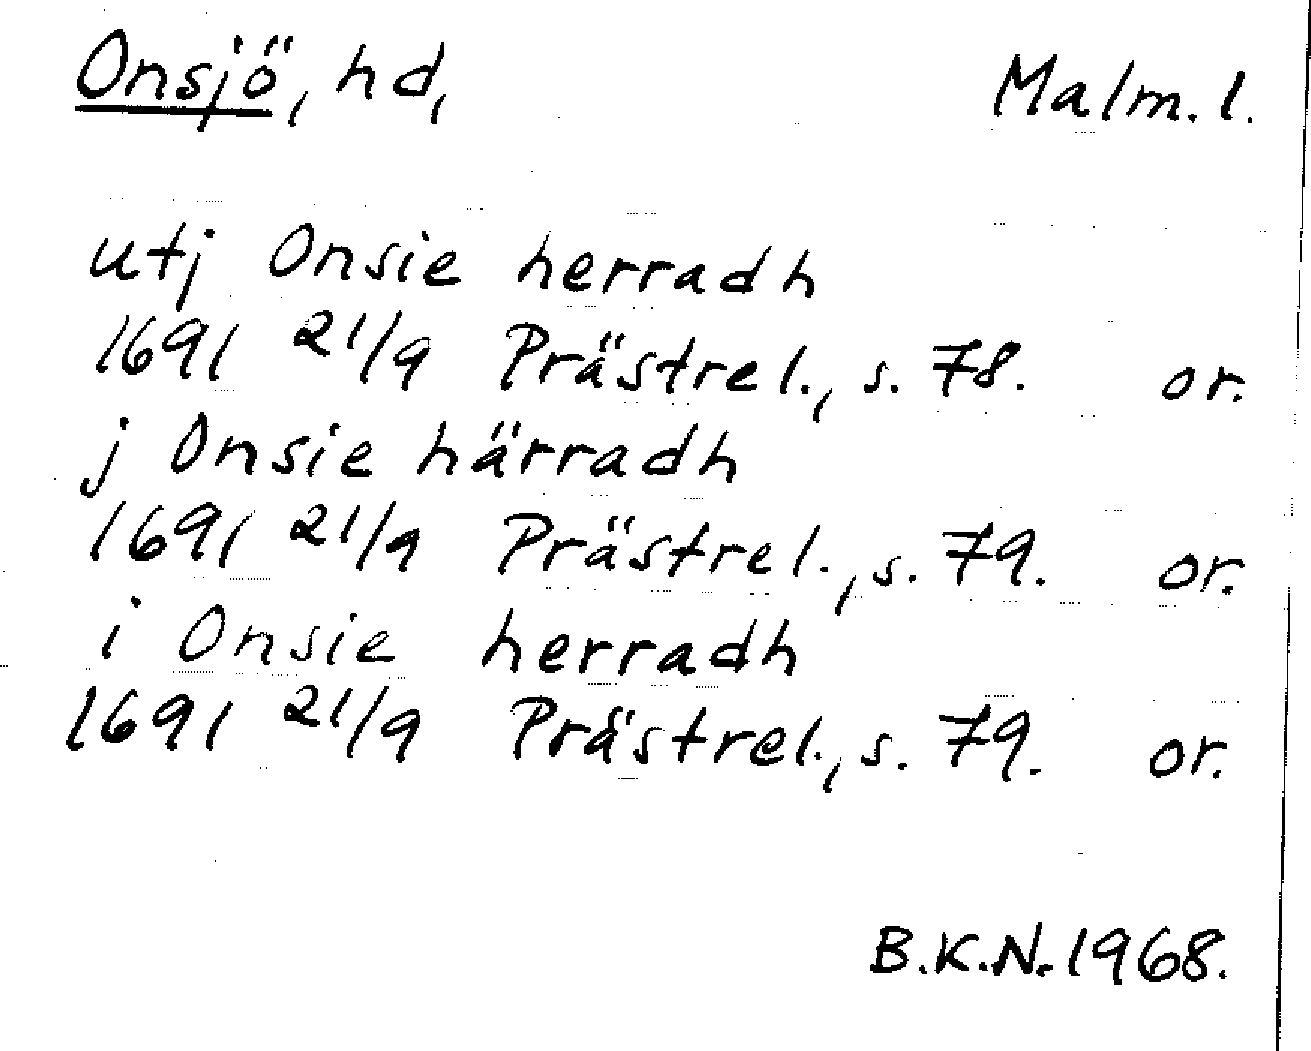 Onsjö, hd, Malm. l.
utj Onsie herradh
1691 21/9 Prästrel., s. 78. or.
j Onsie härradh
1691 21/9 Prästrel., s. 79. or.
i Onsie herradh
1691 21/9 Prästrel., s. 79. or.
B.K.N. 1968.